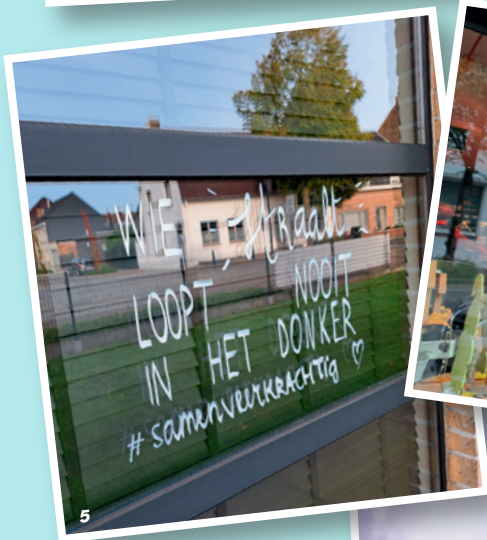 WIE straalt
LOOPT NOOIT
IN HET DONKER
#samenveerkrachtig ♡
5